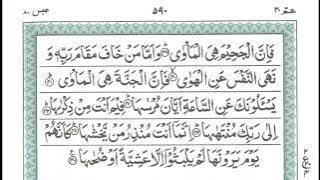 عبس ٨٠ ٥٩٠ عم ٣٠
فَاِنَّ الْجَحِيْمَ هِىَ الْمَاْوٰى وَاَمَّا مَنْ خَافَ مَقَامَ رَبِّهٖ وَ
نَهَى النَّفْسَ عَنِ الْهَوٰى فَاِنَّ الْجَنَّةَ هِىَ الْمَاْوٰى
يَسْئَلُوْنَكَ عَنِ السَّاعَةِ اَيَّانَ مُرْسٰىهَا فِيْمَ اَنْتَ مِنْ ذِكْرٰىهَا
اِلٰى رَبِّكَ مُنْتَهٰىهَا اِنَّمَا اَنْتَ مُنْذِرُ مَنْ يَّخْشٰىهَا كَاَنَّهُمْ
يَوْمَ يَرَوْنَهَا لَمْ يَلْبَثُوْا اِلَّا عَشِيَّةً اَوْ ضُحٰىهَا